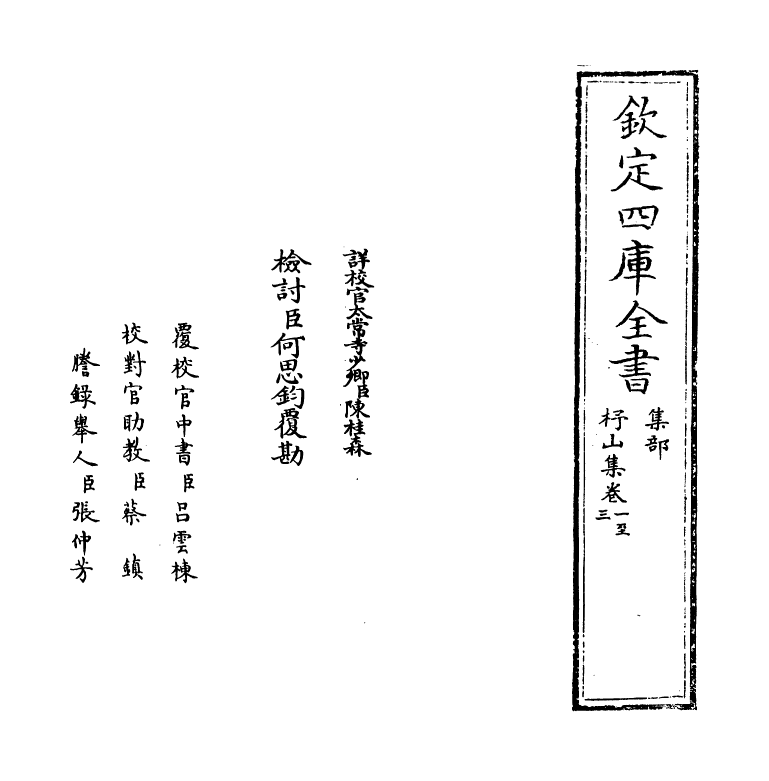 欽定四庫全書
集部
杼山集卷一至三
詳校官太常寺少卿臣陳桂森
檢討臣何思鈞覆勘
覆校官中書臣呂雲棟
校對官助教臣蔡鎮
謄錄舉人臣張仲芳